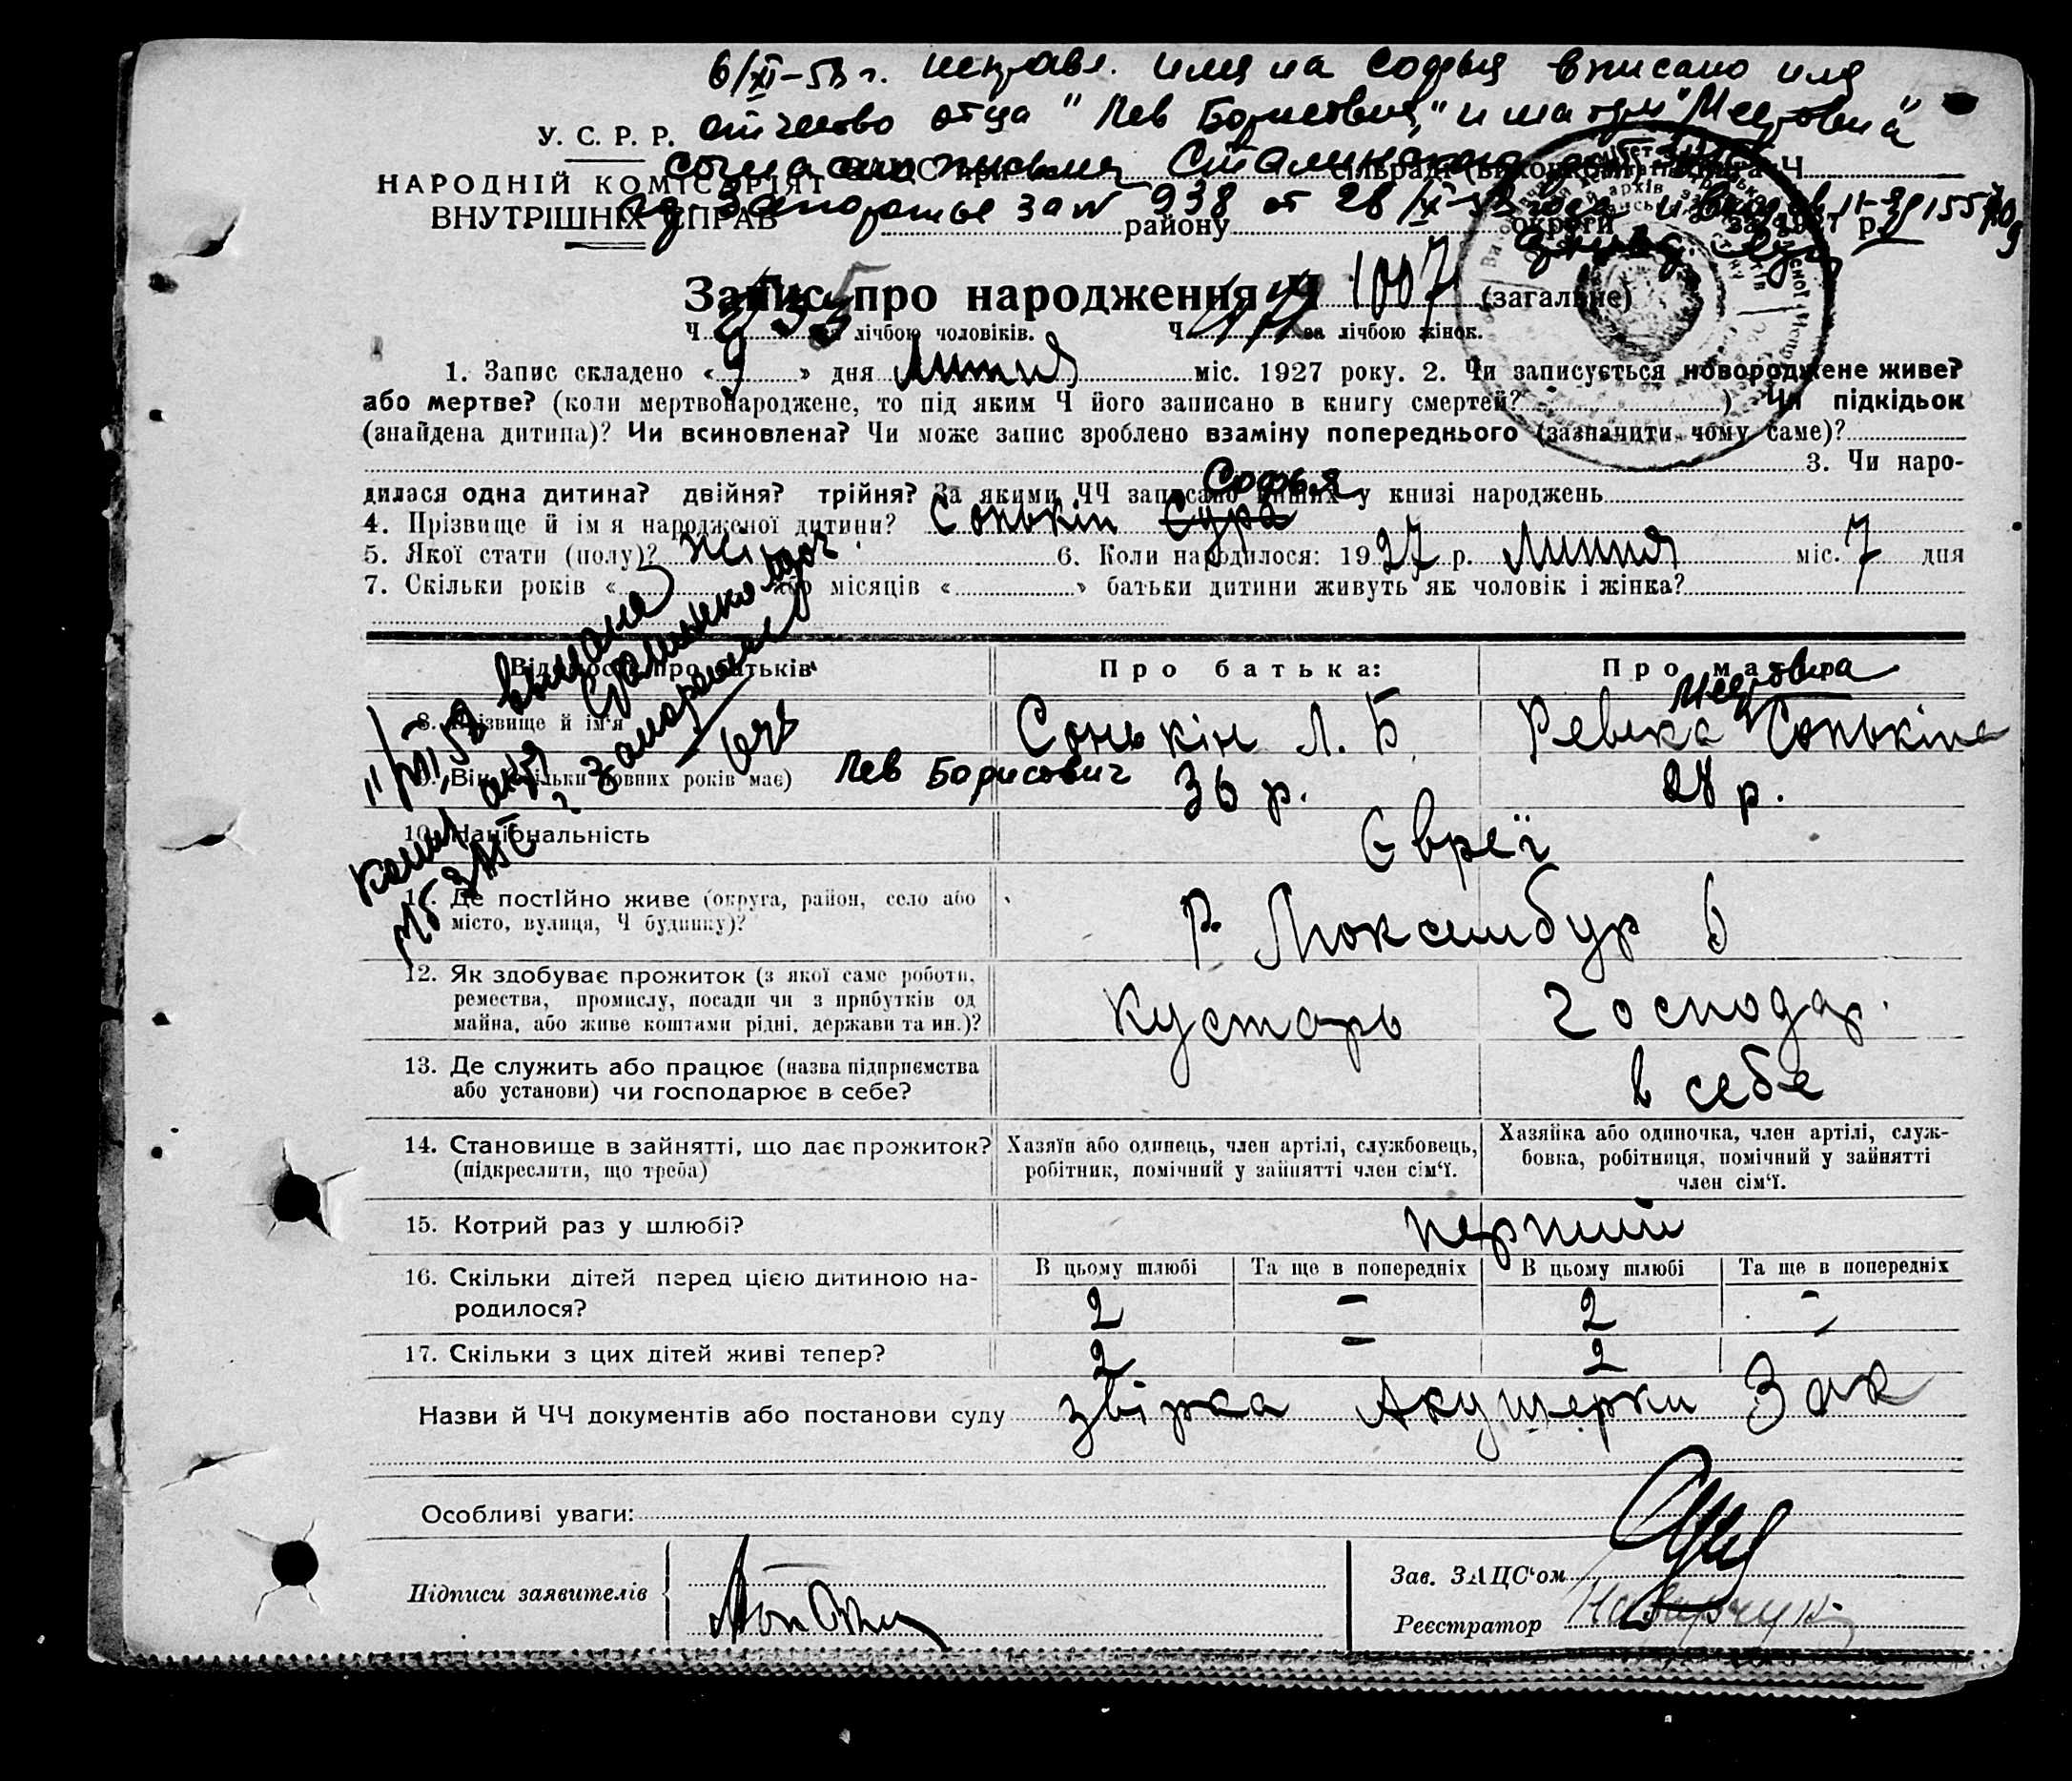 6/XI-53 г. исправл. имя на Софья вписано имя
отчество отца "Лев Борисович" и матери "Меэровна"
У. С. Р. Р.
согласно Сталинского
НАРОДНІЙ КОМІСАРІЯТ
ВНУТРІШНІХ СПРАВ
г. Запорожье за № 938 от 28/X-53
району округи за 1927 р.
Запис про народження Ч 1007 (загальне)
Ч за лічбою чоловіків. Ч за лічбою жінок.
1. Запис складено « 9 » дня Липня міс. 1927 року. 2. Чи записується новороджене живе?
або мертве? (коли мертвонароджене, то під яким Ч його записано в книгу смертей? ) Чи підкідьок
(знайдена дитина)? Чи всиновлена? Чи може запис зроблено взаміну попереднього (зазначити, чому саме)?
3. Чи наро-
Софья
дилася одна дитина? двійня? трійня? За якими ЧЧ записано инших у книзі народжень
4. Прізвище й ім'я народженої дитини? Сонькін Сура
5. Якої стати (полу)? жіноч. 6. Коли народилося: 1927 р. Липня міс. 7 дня
7. Скільки років « або місяців « » батьки дитини живуть як чоловік і жінка?
Відомості про батьків Про батька: Про матір
Меэровна
8. Прізвище й ім'я Сонькін Л. Б. Ревека Сонькіна
9. Вік (скільки повних років має) Лев Борисович 36 р. 28 р.
10. Національність Євреї
11. Де постійно живе (округа, район, село або
місто, вулиця, Ч будинку)? Р. Люксембур 6
12. Як здобуває прожиток (з якої саме роботи,
ремества, промислу, посади чи з прибутків од
майна, або живе коштами рідні, держави та ин.)? Кустарь Господар.
13. Де служить або працює (назва підприємства
або установи) чи господарює в себе? в себе
14. Становище в зайнятті, що дає прожиток?
(підкреслити, що треба)
Хазяїн або одинець, член артілі, службовець,
робітник, помічний у зайнятті член сім'ї.
Хазяйка або одиночка, член артілі, служ-
бовка, робітниця, помічний у зайнятті
член сім'ї.
15. Котрий раз у шлюбі? перший
16. Скільки дітей перед цією дитиною на-
родилося?
В цьому шлюбі Та ще в попередніх В цьому шлюбі Та ще в попередніх
2 – 2 –
17. Скільки з цих дітей живі тепер? 2 – 2
Назви й ЧЧ документів або постанови суду звірка Акушерки Зак
Особливі уваги:
Підписи заявителів
Зав. ЗАЦС'ом
Реєстратор